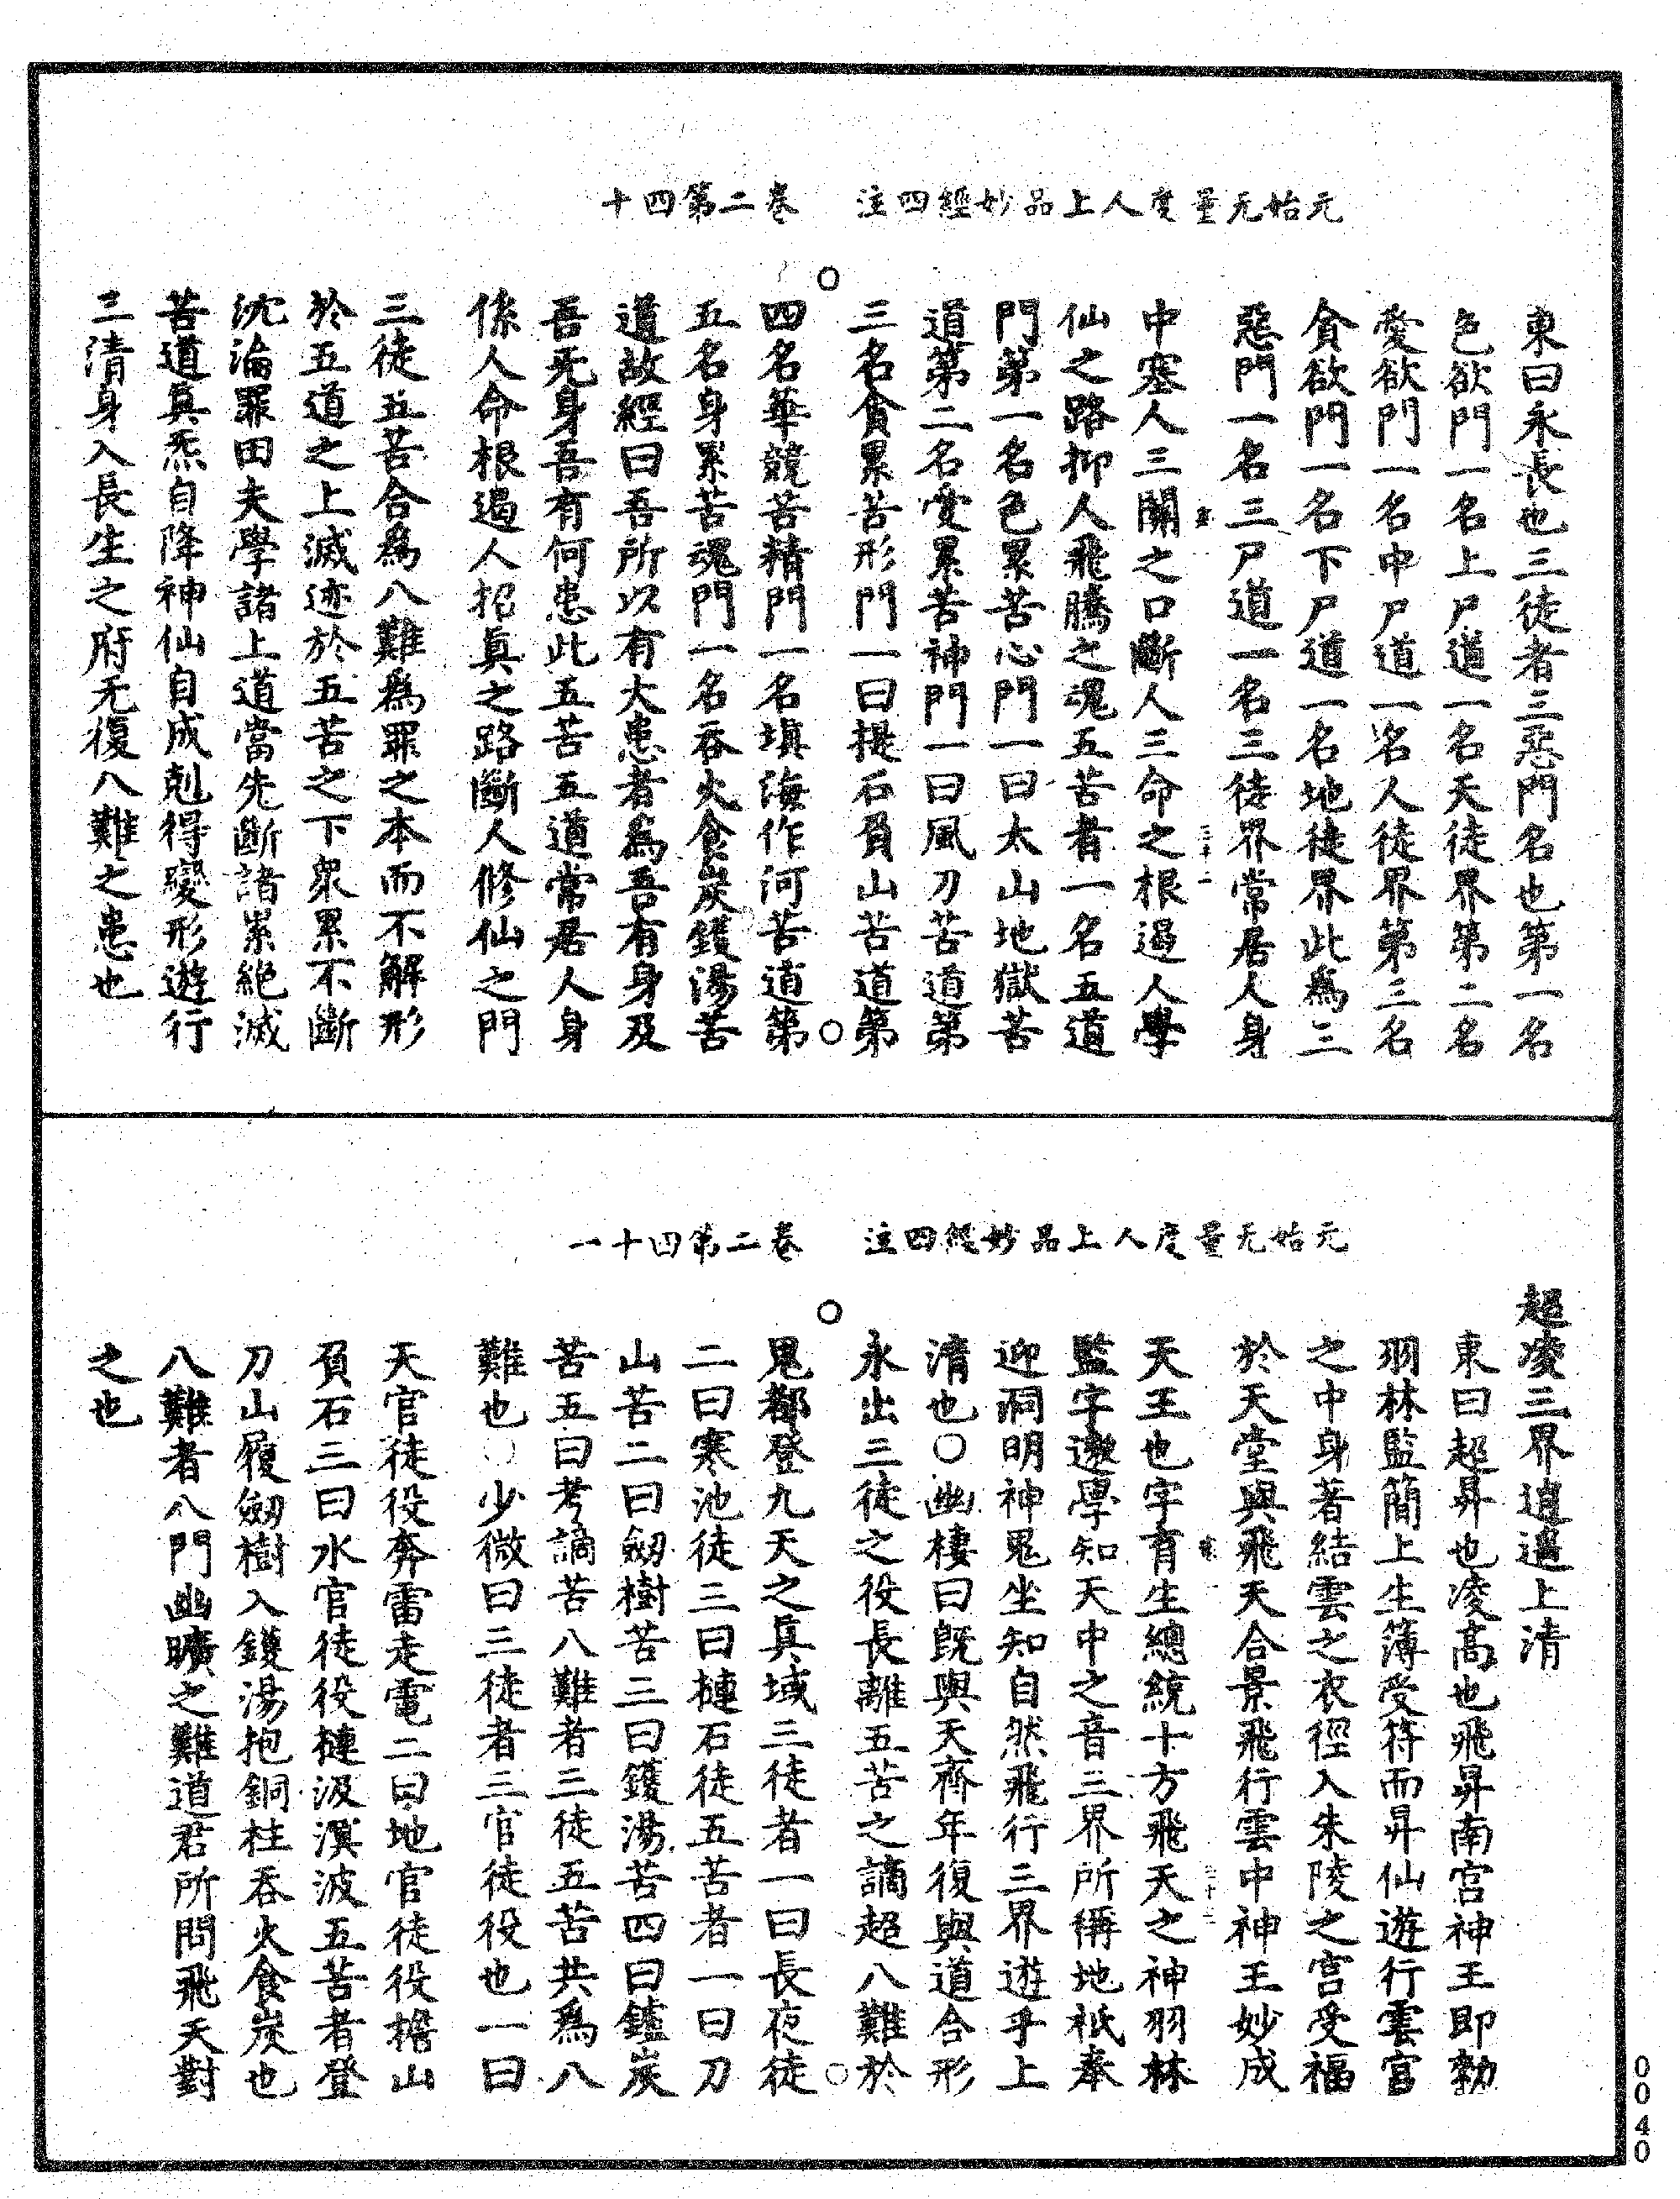 元始无量度人上品妙經四注　卷二第四十
東曰永長也三徒者三惡門名也第一名
色欲門一名上尸道一名天徒界第二名
愛欲門一名中尸道一名人徒界第三名
貪欲門一名下尸道一名地徒界此爲三
惡門一名三尸道一名三徒界常居人身
中塞人三關之口斷人三命之根遏人學
仙之路抑人飛騰之魂五苦者一名五道
門第一名色累苦心門一曰太山地獄苦
道第二名愛累苦神門一曰風刀苦道第
三名貪累苦形門一曰提石負山苦道第
四名華競苦精門一名填海作河苦道第
五名身累苦魂門一名吞火食炭鑊湯苦
道故經曰吾所以有大患者爲吾有身及
吾无身吾有何患此五苦五道常居人身
係人命根遏人招真之路斷人修仙之門
三徒五苦合爲八難爲罪之本而不解形
於五道之上滅迹於五苦之下衆累不斷
沈淪罪田夫學諸上道當先斷諸累絕滅
苦道真炁自降神仙自成剋得變形遊行
三清身入長生之府无復八難之患也
元始无量度人上品妙經四注　卷二第四十一
超凌三界逍遥上清
東曰超昇也凌高也飛昇南宮神王即勑
羽林監簡上生簿受符而昇仙遊行雲宮
之中身著結雲之衣徑入朱陵之宮受福
於天堂與飛天合景飛行雲中神王妙成
天王也字育生總統十方飛天之神羽林
監字遬學知天中之音三界所稱地祇奉
迎洞明神鬼坐知自然飛行三界遊乎上
清也○幽棲曰既與天齊年復與道合形
永出三徒之役長離五苦之謫超八難於
鬼都登九天之真域三徒者一曰長夜徒
二曰寒池徒三曰槤石徒五苦者一曰刀
山苦二曰劒樹苦三曰鑊湯苦四曰鑪炭
苦五曰考謫苦八難者三徒五苦共爲八
難也○少微曰三徒者三官徒役也一曰
天官徒役奔雷走電二曰地官徒役擔山
負石三曰水官徒役槤汲溟波五苦者登
刀山履劒樹入鑊湯抱銅柱吞火食炭也
八難者八門幽曠之難道君所問飛天對
之也
0040